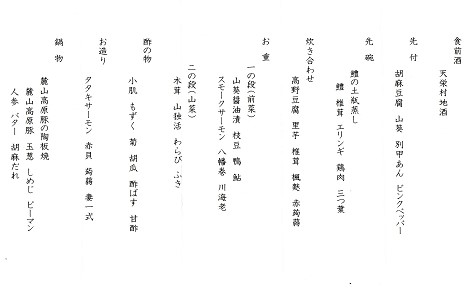 食前酒
天栄村地酒
先付
胡麻豆腐 山葵 別甲あん ピンクペッパー
先碗
鱧の土瓶蒸し
鱧 椎茸 エリンギ 鶏肉 三つ葉
炊き合わせ
高野豆腐 里芋 椎茸 楓麩 赤蒟蒻
お重
一の段(前菜)
山葵醤油漬 枝豆 鴨 鮎
スモークサーモン 八幡巻 川海老
二の段(山菜)
木茸 山独活 わらび ふき
酢の物
小肌 もずく 菊 胡瓜 酢ばす 甘酢
お造り
タタキサーモン 赤貝 蒟蒻 妻一式
鍋物
麓山高原豚の陶板焼
麓山高原豚 玉葱 しめじ ピーマン
人参 バター 胡麻だれ